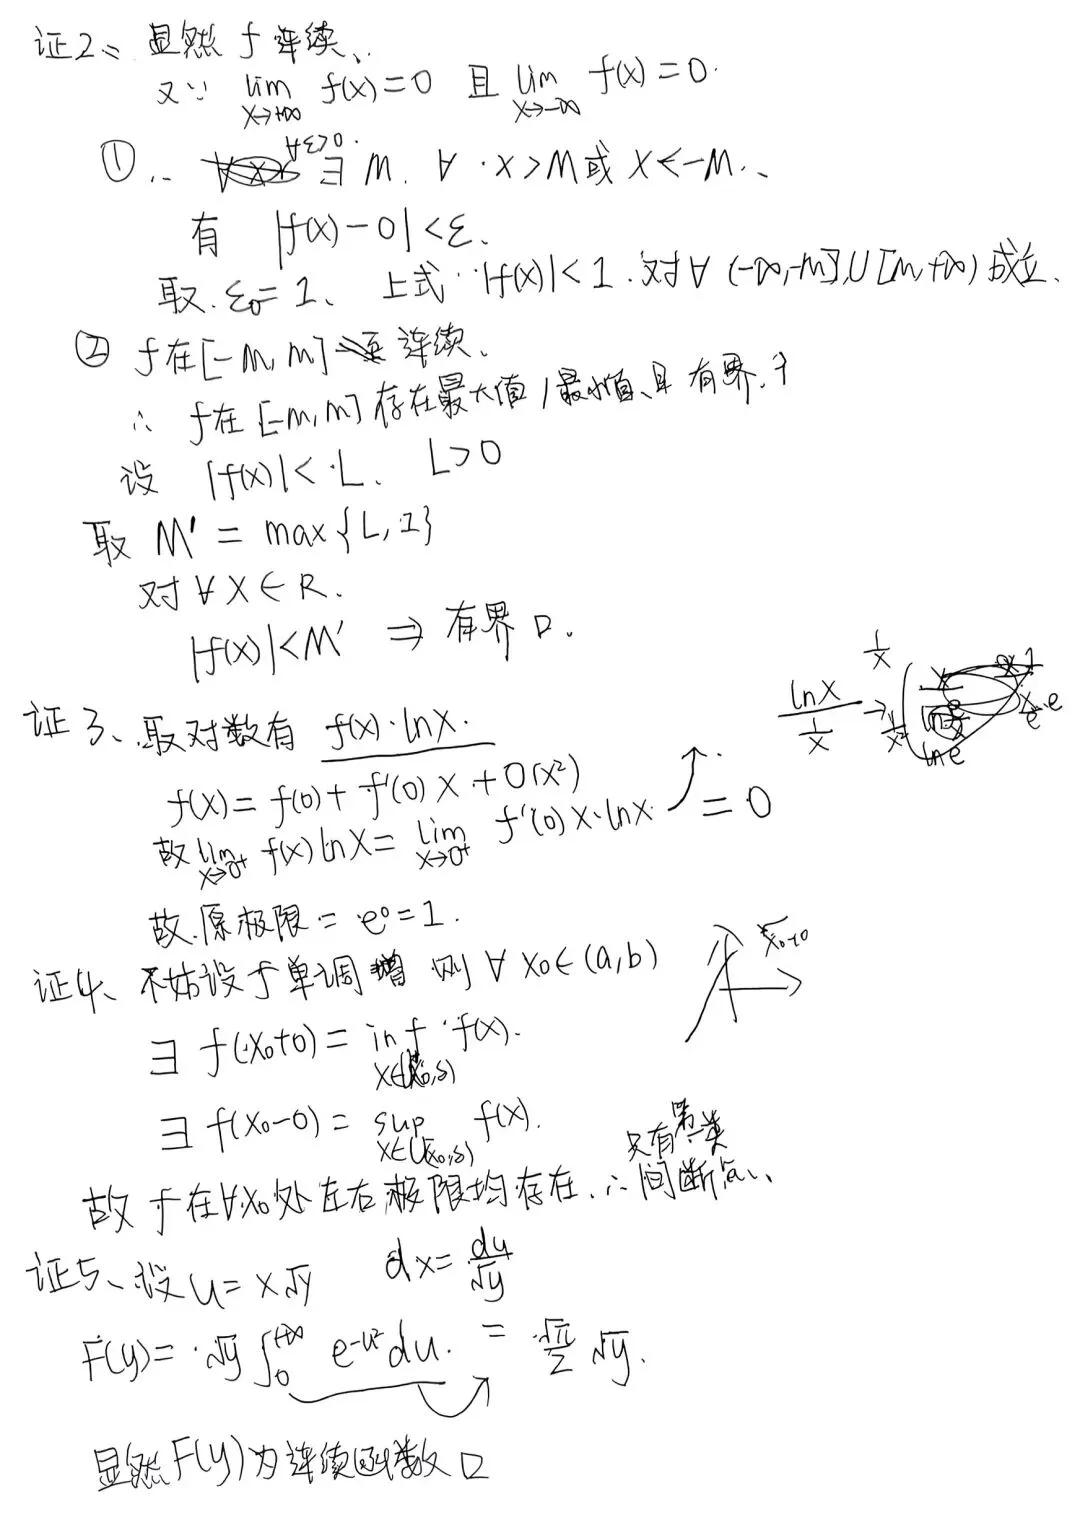 证2、显然 f 连续、
又∵ lim x→+∞ f(x)=0 且 lim x→-∞ f(x)=0.
① ∴ ∀ε>0. ∃ M. ∀ x>M或 x<-M.、
有 |f(x)-0|<ε.
取 ε₀=1、上式 |f(x)|<1. 对∀ (-∞,-M]∪[M,+∞) 成立.
② f在[-M,M] 连续.
∴ f在[-M,M]存在最大值/最小值、且有界.
设 |f(x)|<L、 L>0
取 M' = max{L,1}
对 ∀ x∈R.
|f(x)|<M' ⇒ 有界 □.
证3、取对数有 f(x)·lnx.
lnx / (1/x) → 1/x
f(x)=f(0)+f'(0)x+O(x²)
故 lim x→0⁺ f(x)lnx = lim x→0⁺ f'(0)x·lnx = 0
故.原极限=e⁰=1.
证4、不妨设 f 单调增 则 ∀ x₀∈(a,b)
∃ f(x₀+0)= inf f(x).
∃ f(x₀-0)= sup f(x).
只有第一类
故 f 在∀x₀处左右极限均存在.∴间断点、
证5、设 u=x√y dx=du/√y
F(y)=√y ∫₀^{+∞} e^{-u²}du. = √π/2 √y.
显然F(y)为连续函数 □